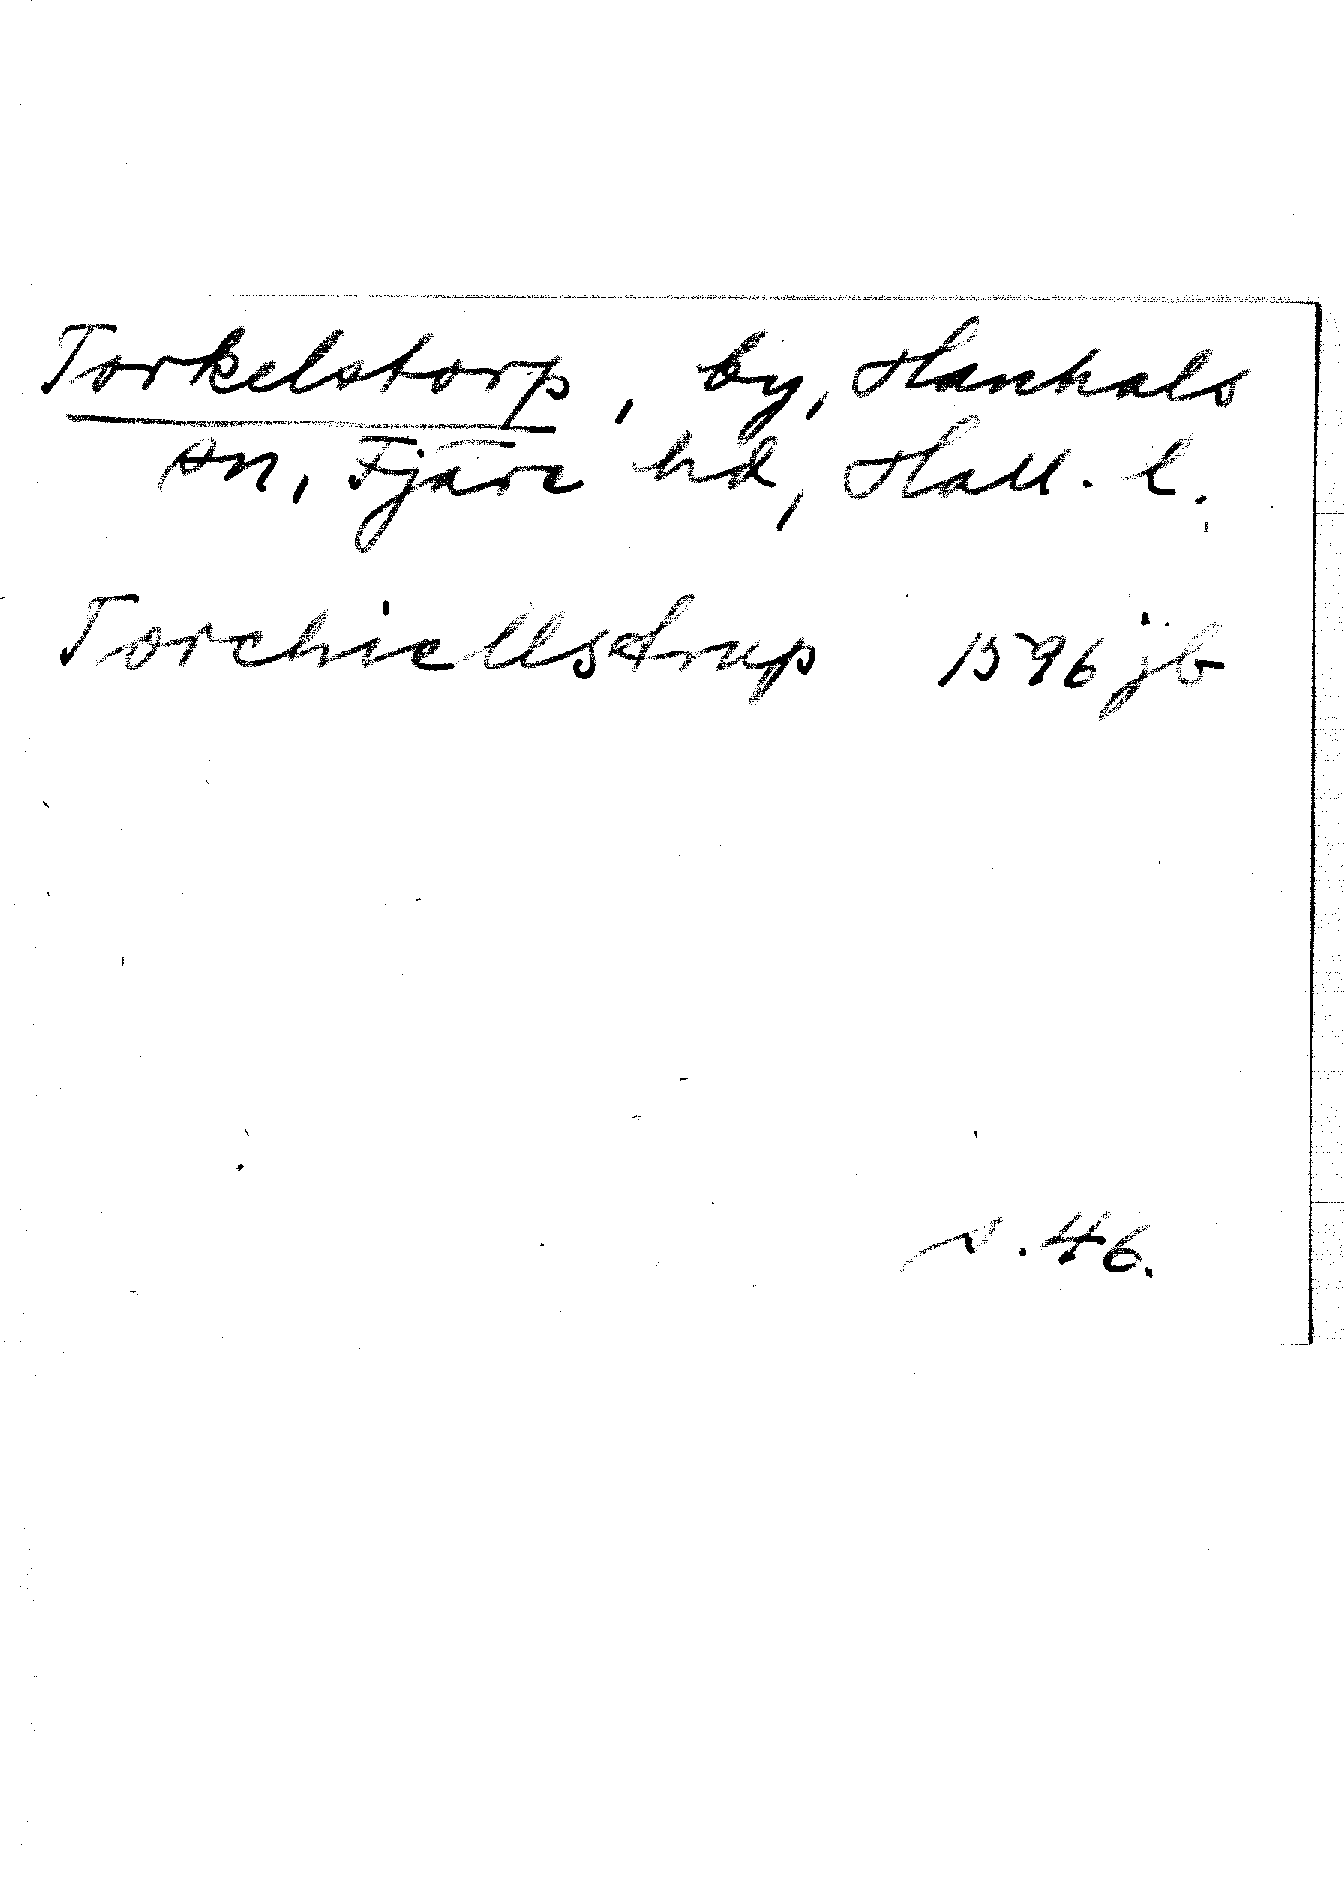 Torkelstorp, by, Hanhals
sn, Fjäre hd, Hall. l.
Torchiellstrup 1596 jb
s. 46.